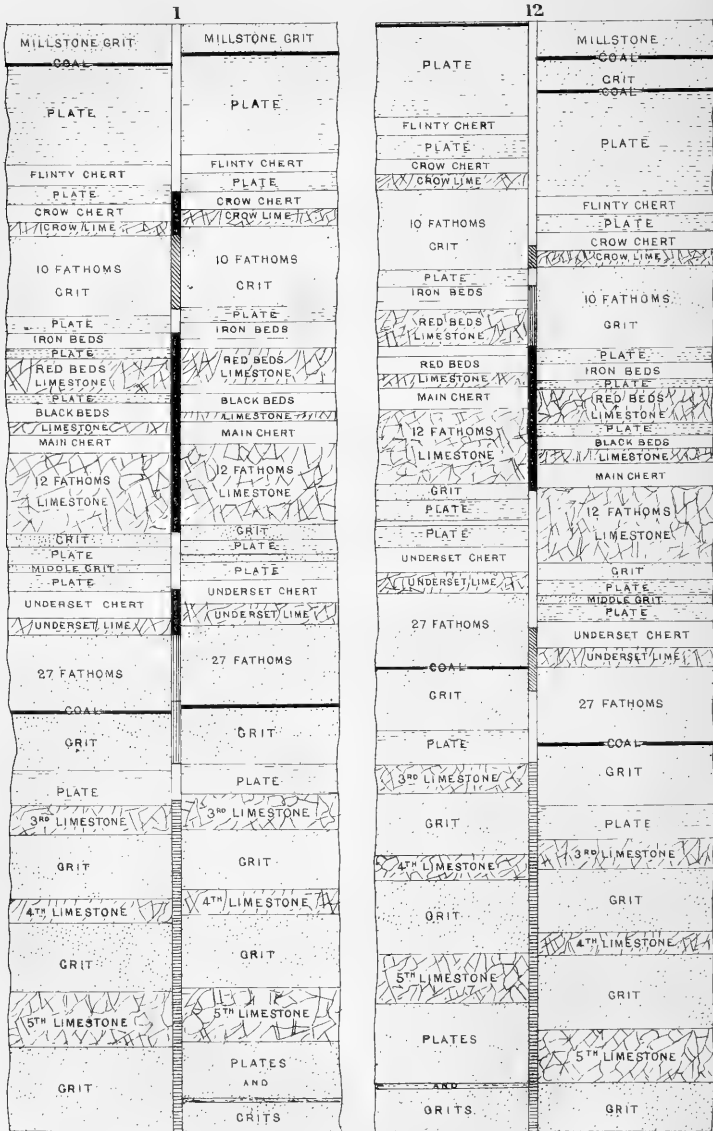 1
MILLSTONE GRIT
COAL
PLATE
FLINTY CHERT
PLATE
CROW CHERT
CROW LIME
10 FATHOMS
GRIT
PLATE
IRON BEDS
PLATE
RED BEDS
LIMESTONE
PLATE
BLACK BEDS
LIMESTONE
MAIN CHERT
12 FATHOMS
LIMESTONE
GRIT
PLATE
MIDDLE GRIT
PLATE
UNDERSET CHERT
UNDERSET LIME
27 FATHOMS
COAL
GRIT
PLATE
3RD LIMESTONE
GRIT
4TH LIMESTONE
GRIT
5TH LIMESTONE
GRIT
MILLSTONE GRIT
PLATE
FLINTY CHERT
PLATE
CROW CHERT
CROW LIME
10 FATHOMS
GRIT
PLATE
IRON BEDS
RED BEDS
LIMESTONE
BLACK BEDS
LIMESTONE
MAIN CHERT
12 FATHOMS
LIMESTONE
GRIT
PLATE
PLATE
UNDERSET CHERT
UNDERSET LIME
27 FATHOMS
GRIT
PLATE
3RD LIMESTONE
GRIT
4TH LIMESTONE
GRIT
5TH LIMESTONE
PLATES
AND
GRITS
12
PLATE
FLINTY CHERT
PLATE
CROW CHERT
CROW LIME
10 FATHOMS
GRIT
PLATE
IRON BEDS
RED BEDS
LIMESTONE
RED BEDS
LIMESTONE
MAIN CHERT
12 FATHOMS
LIMESTONE
GRIT
PLATE
PLATE
UNDERSET CHERT
UNDERSET LIME
27 FATHOMS
COAL
GRIT
PLATE
3RD LIMESTONE
GRIT
4TH LIMESTONE
GRIT
5TH LIMESTONE
PLATES
AND
GRITS
MILLSTONE
COAL
GRIT
COAL
PLATE
FLINTY CHERT
PLATE
CROW CHERT
CROW LIME
10 FATHOMS
GRIT
PLATE
IRON BEDS
PLATE
RED BEDS
LIMESTONE
PLATE
BLACK BEDS
LIMESTONE
MAIN CHERT
12 FATHOMS
LIMESTONE
GRIT
PLATE
MIDDLE GRIT
PLATE
UNDERSET CHERT
UNDERSET LIME
27 FATHOMS
COAL
GRIT
PLATE
3RD LIMESTONE
GRIT
4TH LIMESTONE
GRIT
5TH LIMESTONE
GRIT